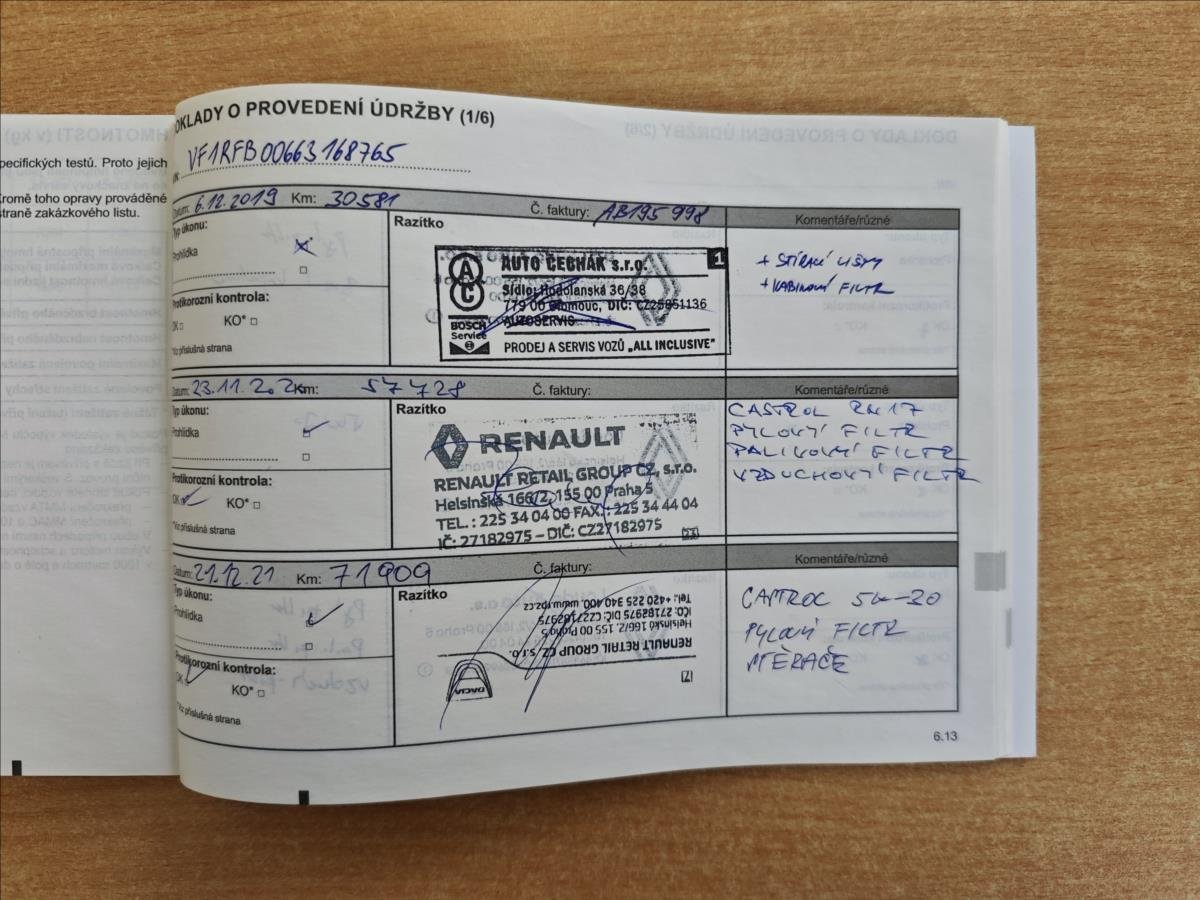 pecifických testů. Proto jejich
Kromě toho opravy prováděné
straně zakázkového listu.
OKLADY O PROVEDENÍ ÚDRŽBY (1/6)
VF1RFB00663168765
Datum: 6.12.2019 Km: 30581 Č. faktury: AB195998 Komentáře/různé
Typ úkonu:
Prohlídka
Protikorozní kontrola:
OK □ KO* □
*Viz příslušná strana
Razítko
AUTO ČECHÁK s.r.o. 1
Sídlo: Hodolanská 36/38
779 00 Olomouc, DIČ: CZ25851136
AUTOSERVIS
BOSCH
Service
PRODEJ A SERVIS VOZŮ „ALL INCLUSIVE"
+ STÍRACÍ LIŠTY
+ KABINOVÝ FILTR
Datum: 23.11.202 Km: 57728 Č. faktury: Komentáře/různé
Typ úkonu:
Prohlídka
Protikorozní kontrola:
OK KO* □
*Viz příslušná strana
Razítko
RENAULT
RENAULT RETAIL GROUP CZ, s.r.o.
Helsinská 166/2, 155 00 Praha 5
TEL.: 225 34 04 00 FAX.: 225 34 44 04
IČ: 27182975 – DIČ: CZ27182975
23
CASTROL RN17
PYLOVÝ FILTR
PALIVOVÝ FILTR
VZDUCHOVÝ FILTR
Datum: 21.12.21 Km: 71909 Č. faktury: Komentáře/různé
Typ úkonu:
Prohlídka
Protikorozní kontrola:
OK KO* □
*Viz příslušná strana
Razítko
RENAULT RETAIL GROUP CZ s.r.o.
Helsinská 166/2, 155 00 Praha 5
IČO: 27182975 DIČ: CZ27182975
Tel.: +420 225 340 400, www.rpz.cz
DACIA
7
CASTROL 5W-30
PYLOVÝ FILTR
STĚRAČE
6.13